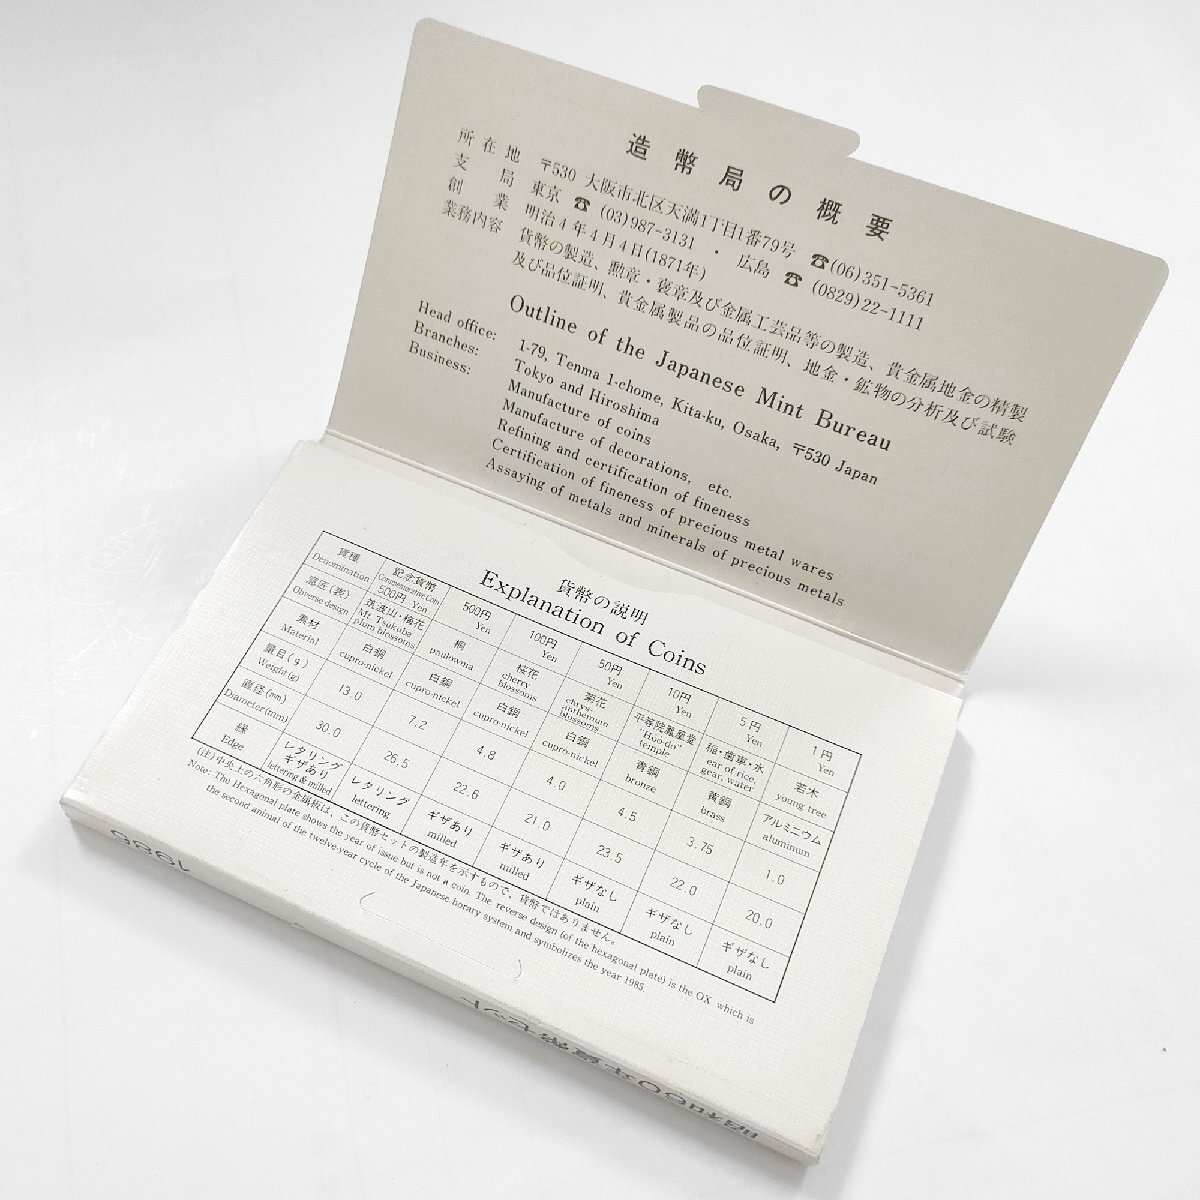 造幣局の概要
所在地 〒530 大阪市北区天満1丁目1番79号 ☎(06)351-5361
支局 東京 ☎ (03)987-3131 ・ 広島 ☎ (0829)22-1111
創業 明治4年4月4日(1871年)
業務内容 貨幣の製造、勲章・褒章及び金属工芸品等の製造、貴金属地金の精製
及び品位証明、貴金属製品の品位証明、地金・鉱物の分析及び試験
Outline of the Japanese Mint Bureau
Head office: 1-79, Tenma 1-chome, Kita-ku, Osaka, 〒530 Japan
Branches: Tokyo and Hiroshima
Business: Manufacture of coins
Manufacture of decorations, etc.
Refining and certification of fineness
Certification of fineness of precious metal wares
Assaying of metals and minerals of precious metals
貨幣の説明
Explanation of Coins
貨種 記念貨幣 500円 100円 50円 10円 5円 1円
Denomination Commemorative Coin 500円 Yen Yen Yen Yen Yen Yen Yen
意匠(表) 筑波山・梅花 桐 桜花 菊花 平等院鳳凰堂 稲・歯車・水 若木
Obverse design Mt. Tsukuba plum blossoms paulownia cherry blossoms chrysanthemum blossoms "Hoo-do" temple ear of rice, gear, water young tree
素材 白銅 白銅 白銅 白銅 青銅 黄銅 アルミニウム
Material cupro-nickel cupro-nickel cupro-nickel cupro-nickel bronse brass aluminum
量目(g) Weight(g) 13.0 7.2 4.8 4.0 4.5 3.75 1.0
直径(mm) Diameter(mm) 30.0 26.5 22.6 21.0 23.5 22.0 20.0
縁 レタリング ギザあり レタリング ギザあり ギザあり ギザなし ギザなし ギザなし
Edge lettering & milled lettering milled milled plain plain plain
(注)中央上の六角形の金属板は、この貨幣セットの製造年を示すもので、貨幣ではありません。
Note: The Hexagonal plate shows the year of issue but is not a coin. The reverse design (of the hexagonal plate) is the OX which is
the second animal of the twelve-year cycle of the Japanese horary system and symbolizes the year 1985.
1985
昭和60年貨幣セット